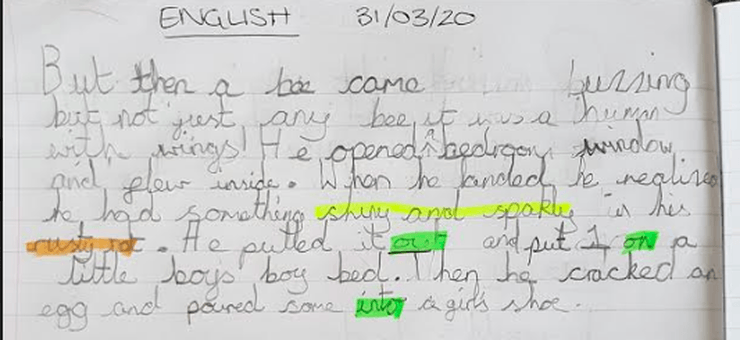 ENGLISH 31/03/20
But then a bee came buzzing
but not just any bee, it was a human
with wings! He opened ^ bedroom window
and flew inside. When he landed he realised
he had something shiny and spakly in his
rusty
. He pulled it out and put 1 on a
little boys' boy bed. Then he cracked an
egg and poured some into a girls shoe.